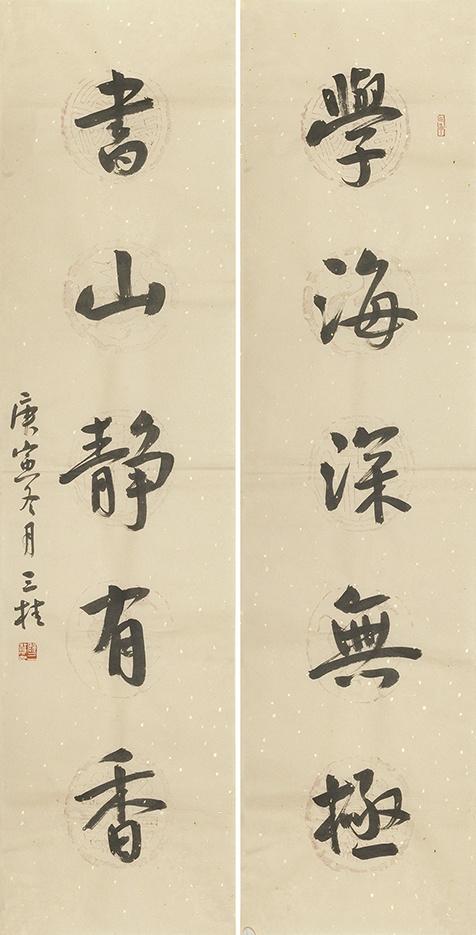 學海深無極
書山静有香
庚寅冬月 三桂